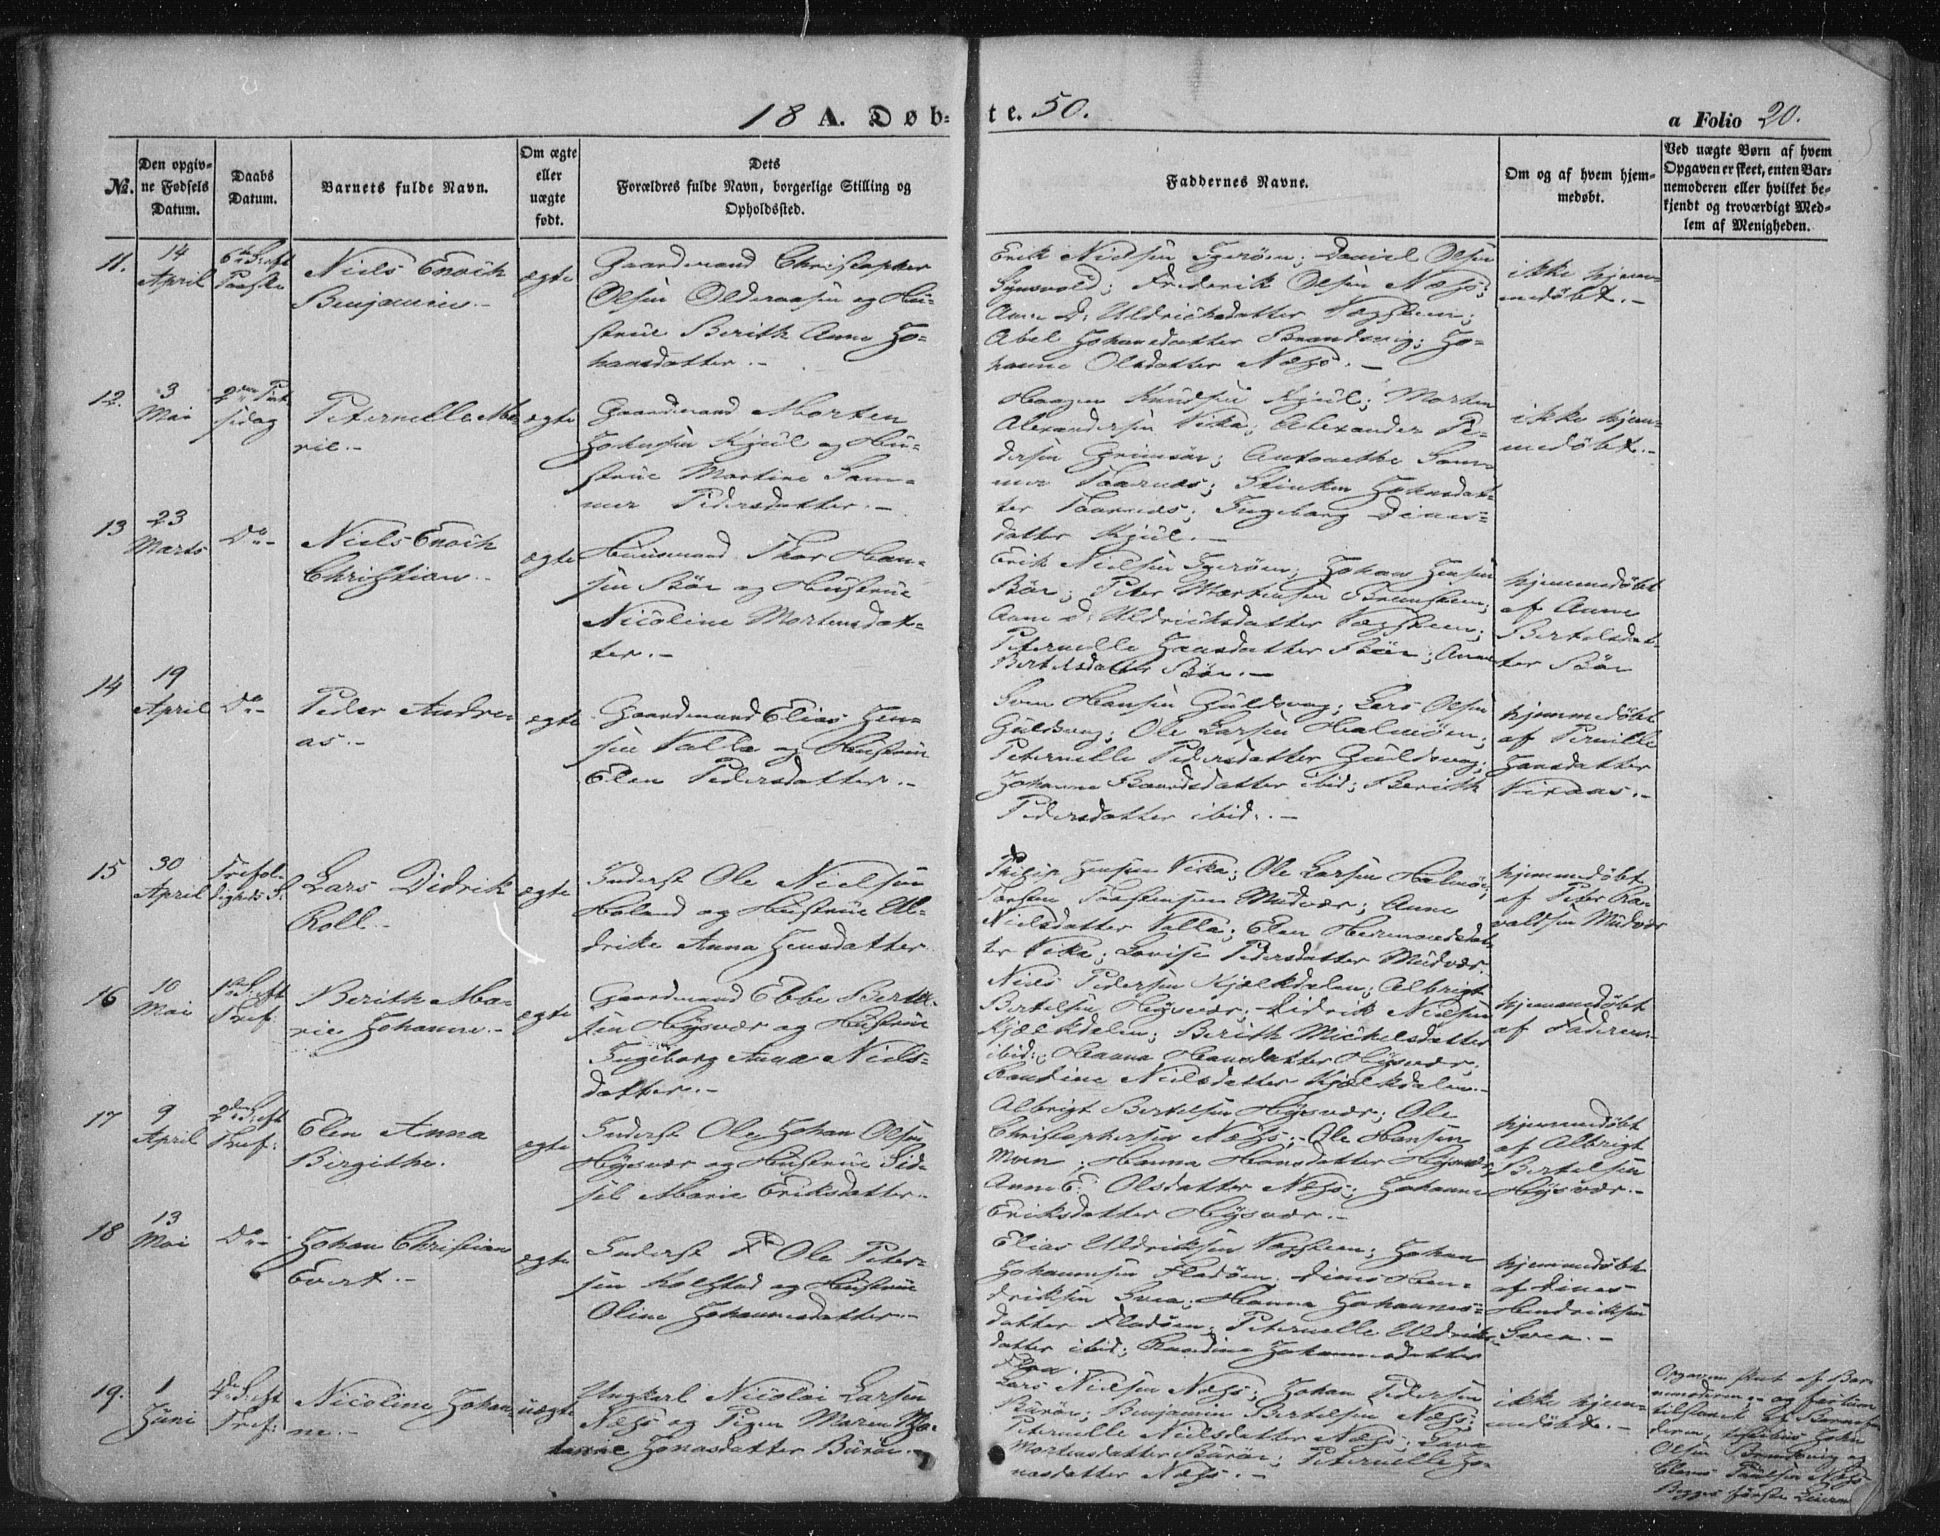 18 A. Døb-
te. 50.
a Folio 20.
No.
Den opgiv-
ne Fødsels
Datum.
Daabs
Datum.
Barnets fulde Navn.
Om ægte
eller
uægte
født.
Dets
Forældres fulde Navn, borgerlige Stilling og
Opholdssted.
Faddernes Navne.
Om og af hvem hjem-
medøbt.
Ved uægte Børn af hvem
Opgaven er skeet, enten Bar-
nemoderen eller hvilket be-
kjendt og troværdigt Med-
lem af Menigheden.
11.
14
April
6te S: eft
Paaske
Niels Enoch
Benjamin.-
ægte
Gaardmand Christopher
Olsen Olderaasen og Hu-
strue Berith Anna Jo-
hansdatter.-
Erik Nielsen Igerøen; Daniel Olsen
Frederik Olsen Næss;
Anne D: Uldriksdatter Vegsteen;
Abel Johansdatter Brandsvig; Jo-
hanne Olsdatter Næss.-
ikke hjem-
medøbt.-
12.
3
Mai
2den Pint-
sedag
Peternelle Ma-
rie.-
ægte
Gaardmand Morten
Johnsen Kjul og Hu-
strue Martine Som-
mer Pedersdatter.-
Haagen Knudsen Kjul; Morten
Alexandersen Vika; Alexander Pe-
dersen Grimsøe; Antonette Som-
mer Taarnes; Stinken Johnsdat-
ter Taarnes; Ingeborg Dines-
datter Kjul.-
ikke hjem-
medøbt.-
13
23
Marts
Do-
Niels Enoch
Christian.-
ægte
Huusmand Thor Han-
sen Bøe og Hustrue
Nicoline Mortensdat-
ter.-
Erik Nielsen Igerøen; Johan Jensen
Bøe; Peter Mortensen
Anne D: Uldriksdatter Vegsteen;
Peternelle Hansdatter Bøe; Anne
Bertelsdatter Bøe.-
hjemmedøbt
af Anne
Bertelsdat-
ter Bøe
14
19
April
Do-
Peder Andre-
as.-
ægte
Gaardmand Elias Jen-
sen Valla og Hustrue
Elen Pedersdatter.-
Sven Hansen Guldsvag; Lars Olsen
Guldsvag; Ole Larsen Halmøen;
Peternelle Pedersdatter Guldsvag;
Johanne Baardsdatter ibid; Berith
Pedersdatter ibid:.-
hjemmedøbt
af Pernille
Hansdatter
Viraas.-
15
30
April
Trefol-
digheds S:
Lars Didrik
Roll.-
ægte
Inderst Ole Nielsen
Høland og Hustrue Ul-
drike Anna Jensdatter
Philip Jensen Vika; Ole Larsen Halmøe;
Torsten Torstensen Mudvær; Anne
Nielsdatter Valla; Elen Hermansdat-
ter Vika; Lovise Pedersdatter Mudvær.
hjemmedøbt
af Peter Ra-
valdsen Mudvær
16
10
Mai
1ste S: eft
Tref:
Berith Ma-
rie Johanne.-
ægte
Gaardmand Ebbe Bertel-
sen Høysvær og Hustrue
Ingeborg Anna Niels-
datter.-
Niels Pedersen Kjælkdalen; Albrigt
Bertelsen Høysvær; Didrik Nielsen
Kjælkdalen; Berith Mickelsdatter
ibid:; Hanna Hansdatter Høysvær;
Randine Nielsdatter Kjælkdalen.-
hjemmedøbt
af Faderen.-
17
9
April
2den S: eft
Tref:
Elen Anna
Birgithe.
ægte
Inderst Ole Johan Olsen
Høysvær og Hustrue Sid-
sel Marie Eriksdatter.-
Albrigt Bertelsen Høysvær; Ole
Christophersen Næss; Ole Hansen
Moen; Hanna Hansdatter Høysvær;
Anne E: Olsdatter Næss; Johanne
Eriksdatter Høysvær.-
hjemmedøbt
af Albrigt
Bertelsen
Høysvær.-
18
13
Mai
Do-
Johan Christian
Evert.-
ægte
Inderst Ole Peter-
sen Kolstad og Hustrue
Oline Johannesdatter.-
Elias Uldriksen Vegsteen; Johan
Johannesen Fladøen; Dines Hen-
driksen Svea; Hanna Johannes-
datter Fladøen; Peternelle Uldriks-
datter ibid; Randine Johannesdatter
hjemmedøbt
af Dines
Hendriksen
Svea.-
19.
1
Juni
S: eft
Tref:
Nicoline Johan-
ne.-
uægte
Ungkarl Nicolai Larsen
Næss og Pigen Maren
Jonasdatter Burøe.-
Lars Nielsen Næss; Johan Pedersen
Burøe; Benjamin Bertelsen Næss;
Peternelle Nielsdatter Næss; Sara
Mortensdatter Burøe; Peternelle Jo-
nasdatter Næss.-
ikke hjem-
medøbt.-
Opgaven skeet af Bar-
nemoderen og
tilstaaet af Barnefa-
deren; John
Olsen Brandsvig og
Paulsen Næss
Begges første Leiermaal